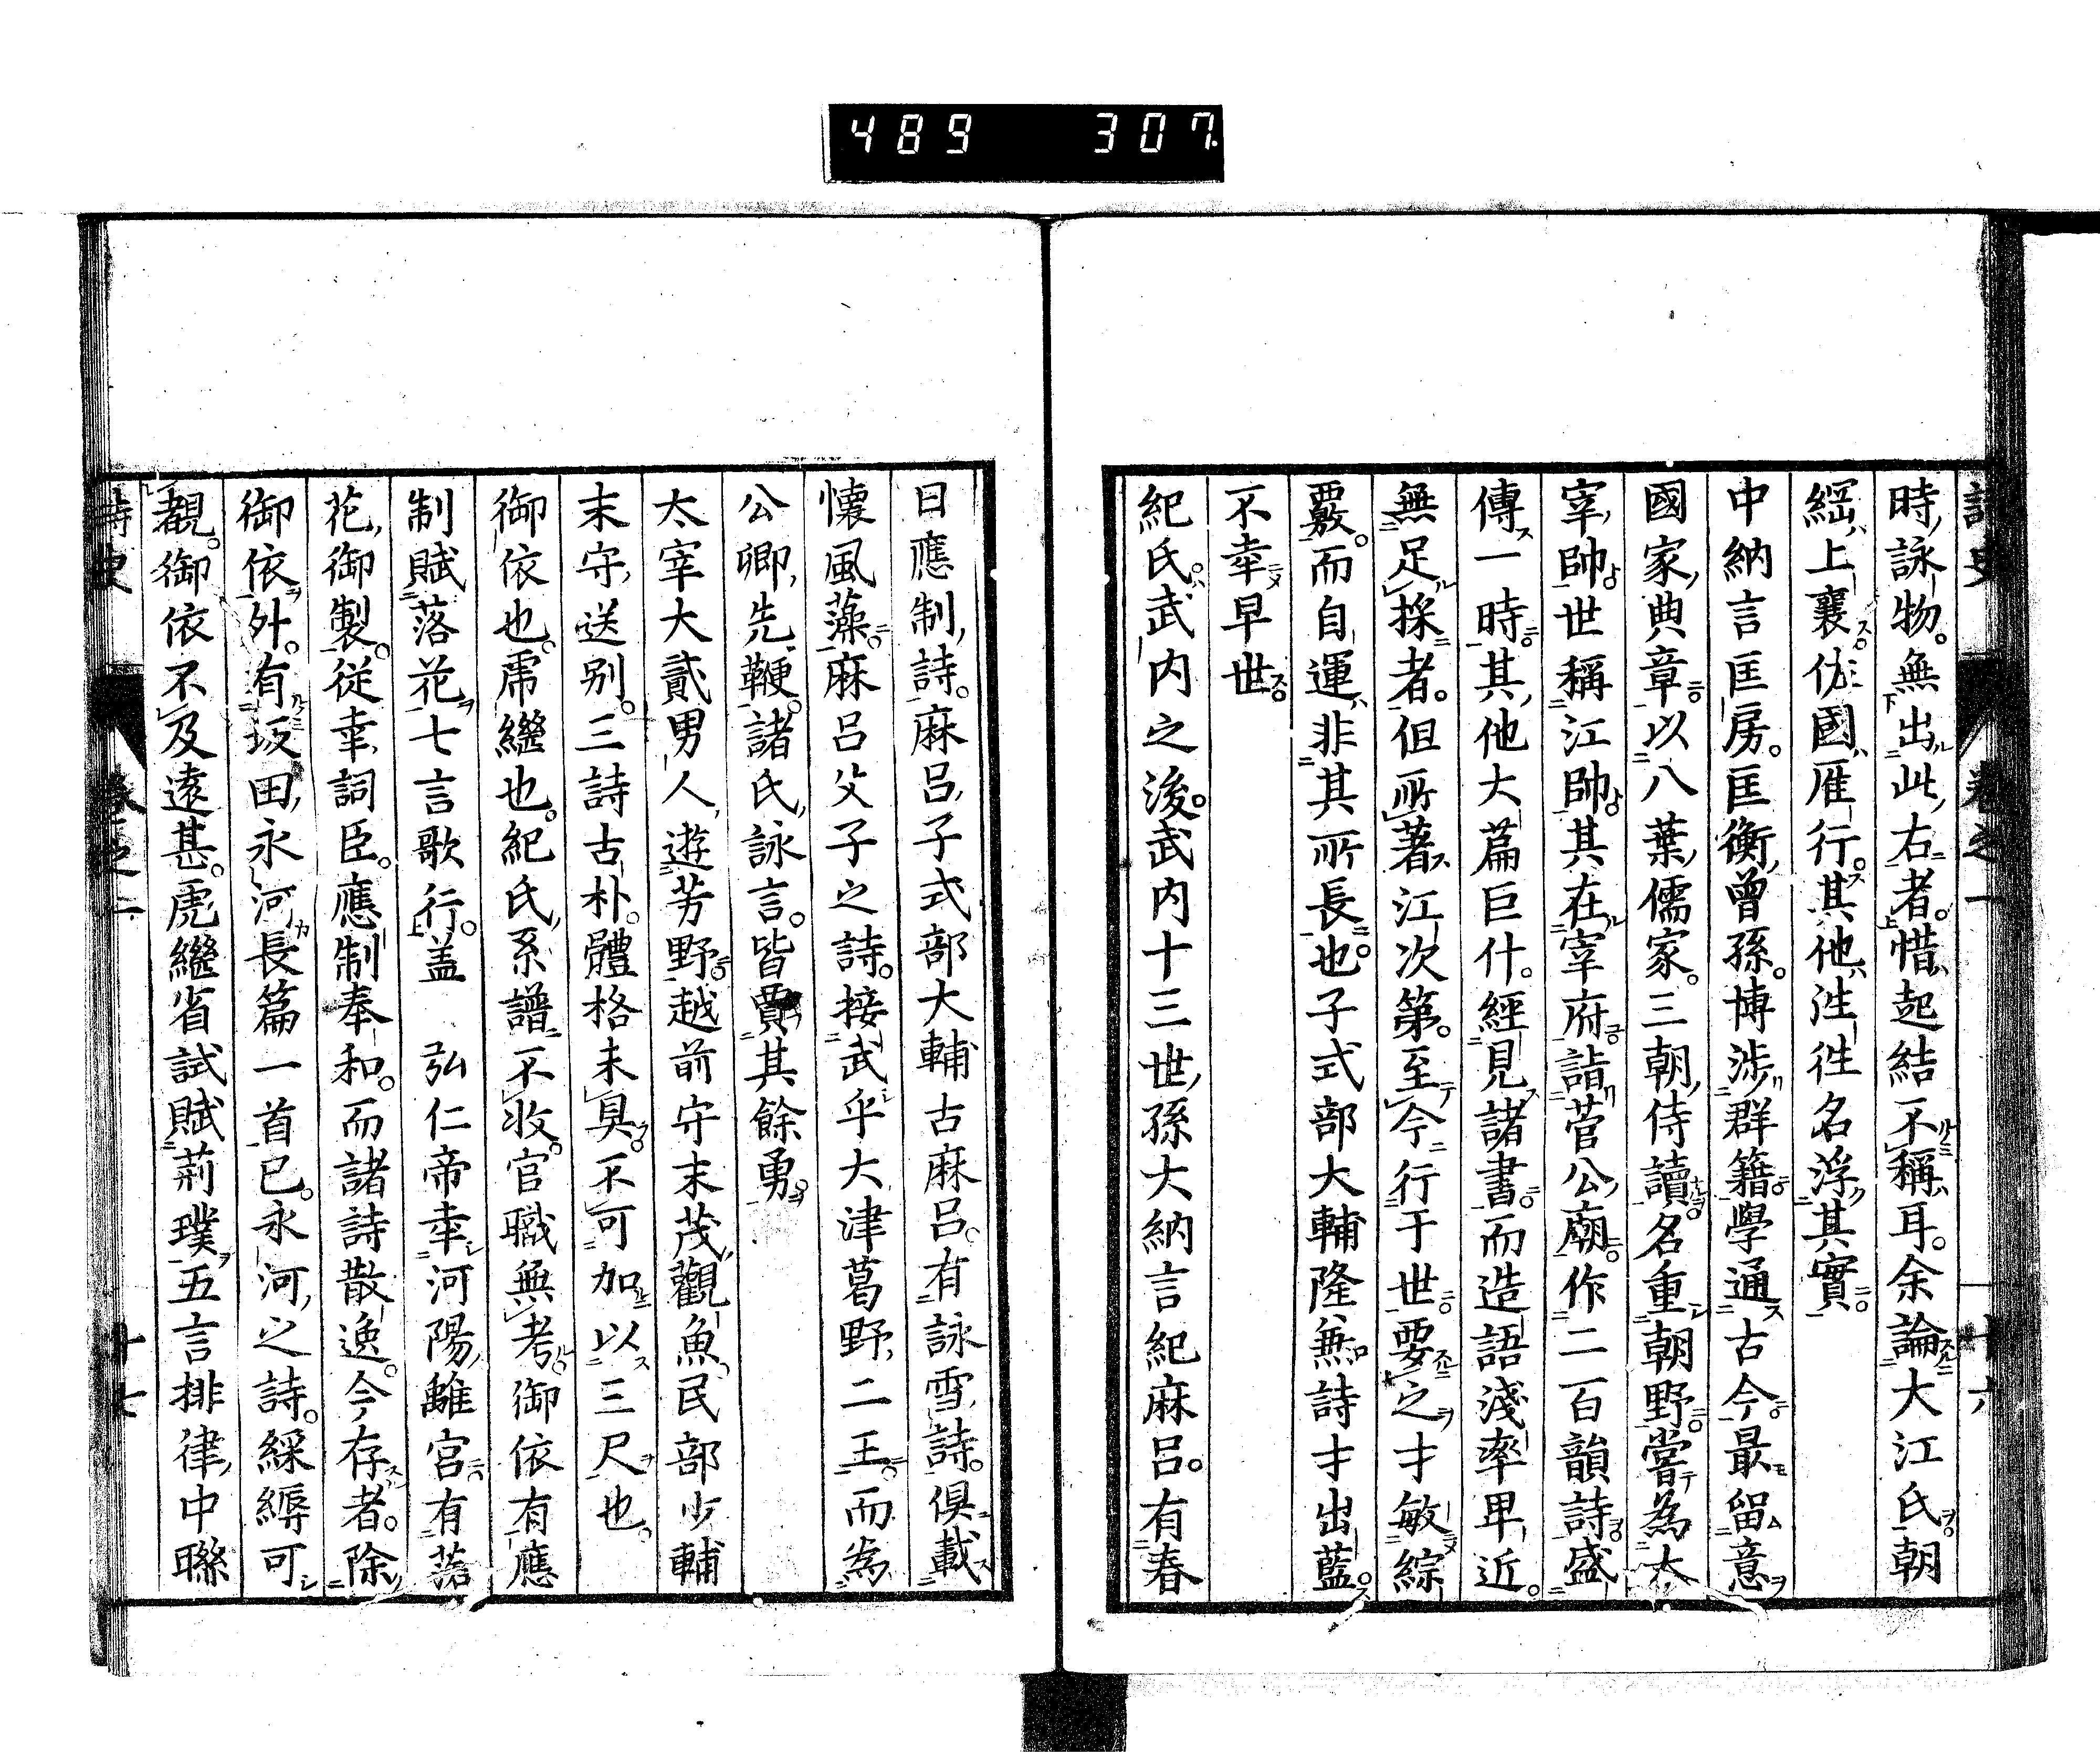 489 307
詩史 卷之一 十六
時詠物。無出此右者。惜起結不稱耳。余論大江氏。朝
綱上襄。佐國雁行。其他往往名浮其實。
中納言匡房。匡衡曾孫。博涉群籍。學通古今。最留意
國家典章。以八葉儒家。三朝侍讀。名重朝野。嘗為太
宰帥。世稱江帥。其在宰府。詣菅公廟。作二百韻詩。盛
傳一時。其他大篇巨什。經見諸書。而造語淺率卑近。
無足採者。但所著江次第。至今行于世。要之才敏綜
覈。而自運非其所長也。子式部大輔隆兼詩才出藍。
不幸早世。
紀氏。武內之後。武內十三世孫大納言紀麻呂。有春
日應制詩。麻呂子式部大輔古麻呂。有詠雪詩。俱載
懷風藻。麻呂父子之詩。接武乎大津葛野二王。而為
公卿先鞭。諸氏詠言。皆賈其餘勇。
太宰大貳男人遊芳野。越前守末茂觀魚。民部少輔
末守送別。三詩古朴。體格未具。不可加以三尺也。
御依也。乕繼也。紀氏系譜不收。官職無考。御依有應
制賦落花七言歌行。盖 弘仁帝幸河陽離宮有落
花御製。從幸詞臣。應制奉和。而諸詩散逸。今存者。除
御依外。有坂田永河長篇一首已。永河之詩。綵縟可
觀。御依不及遠甚。乕繼省試賦荊璞五言排律中聯
詩史 卷之一 十七